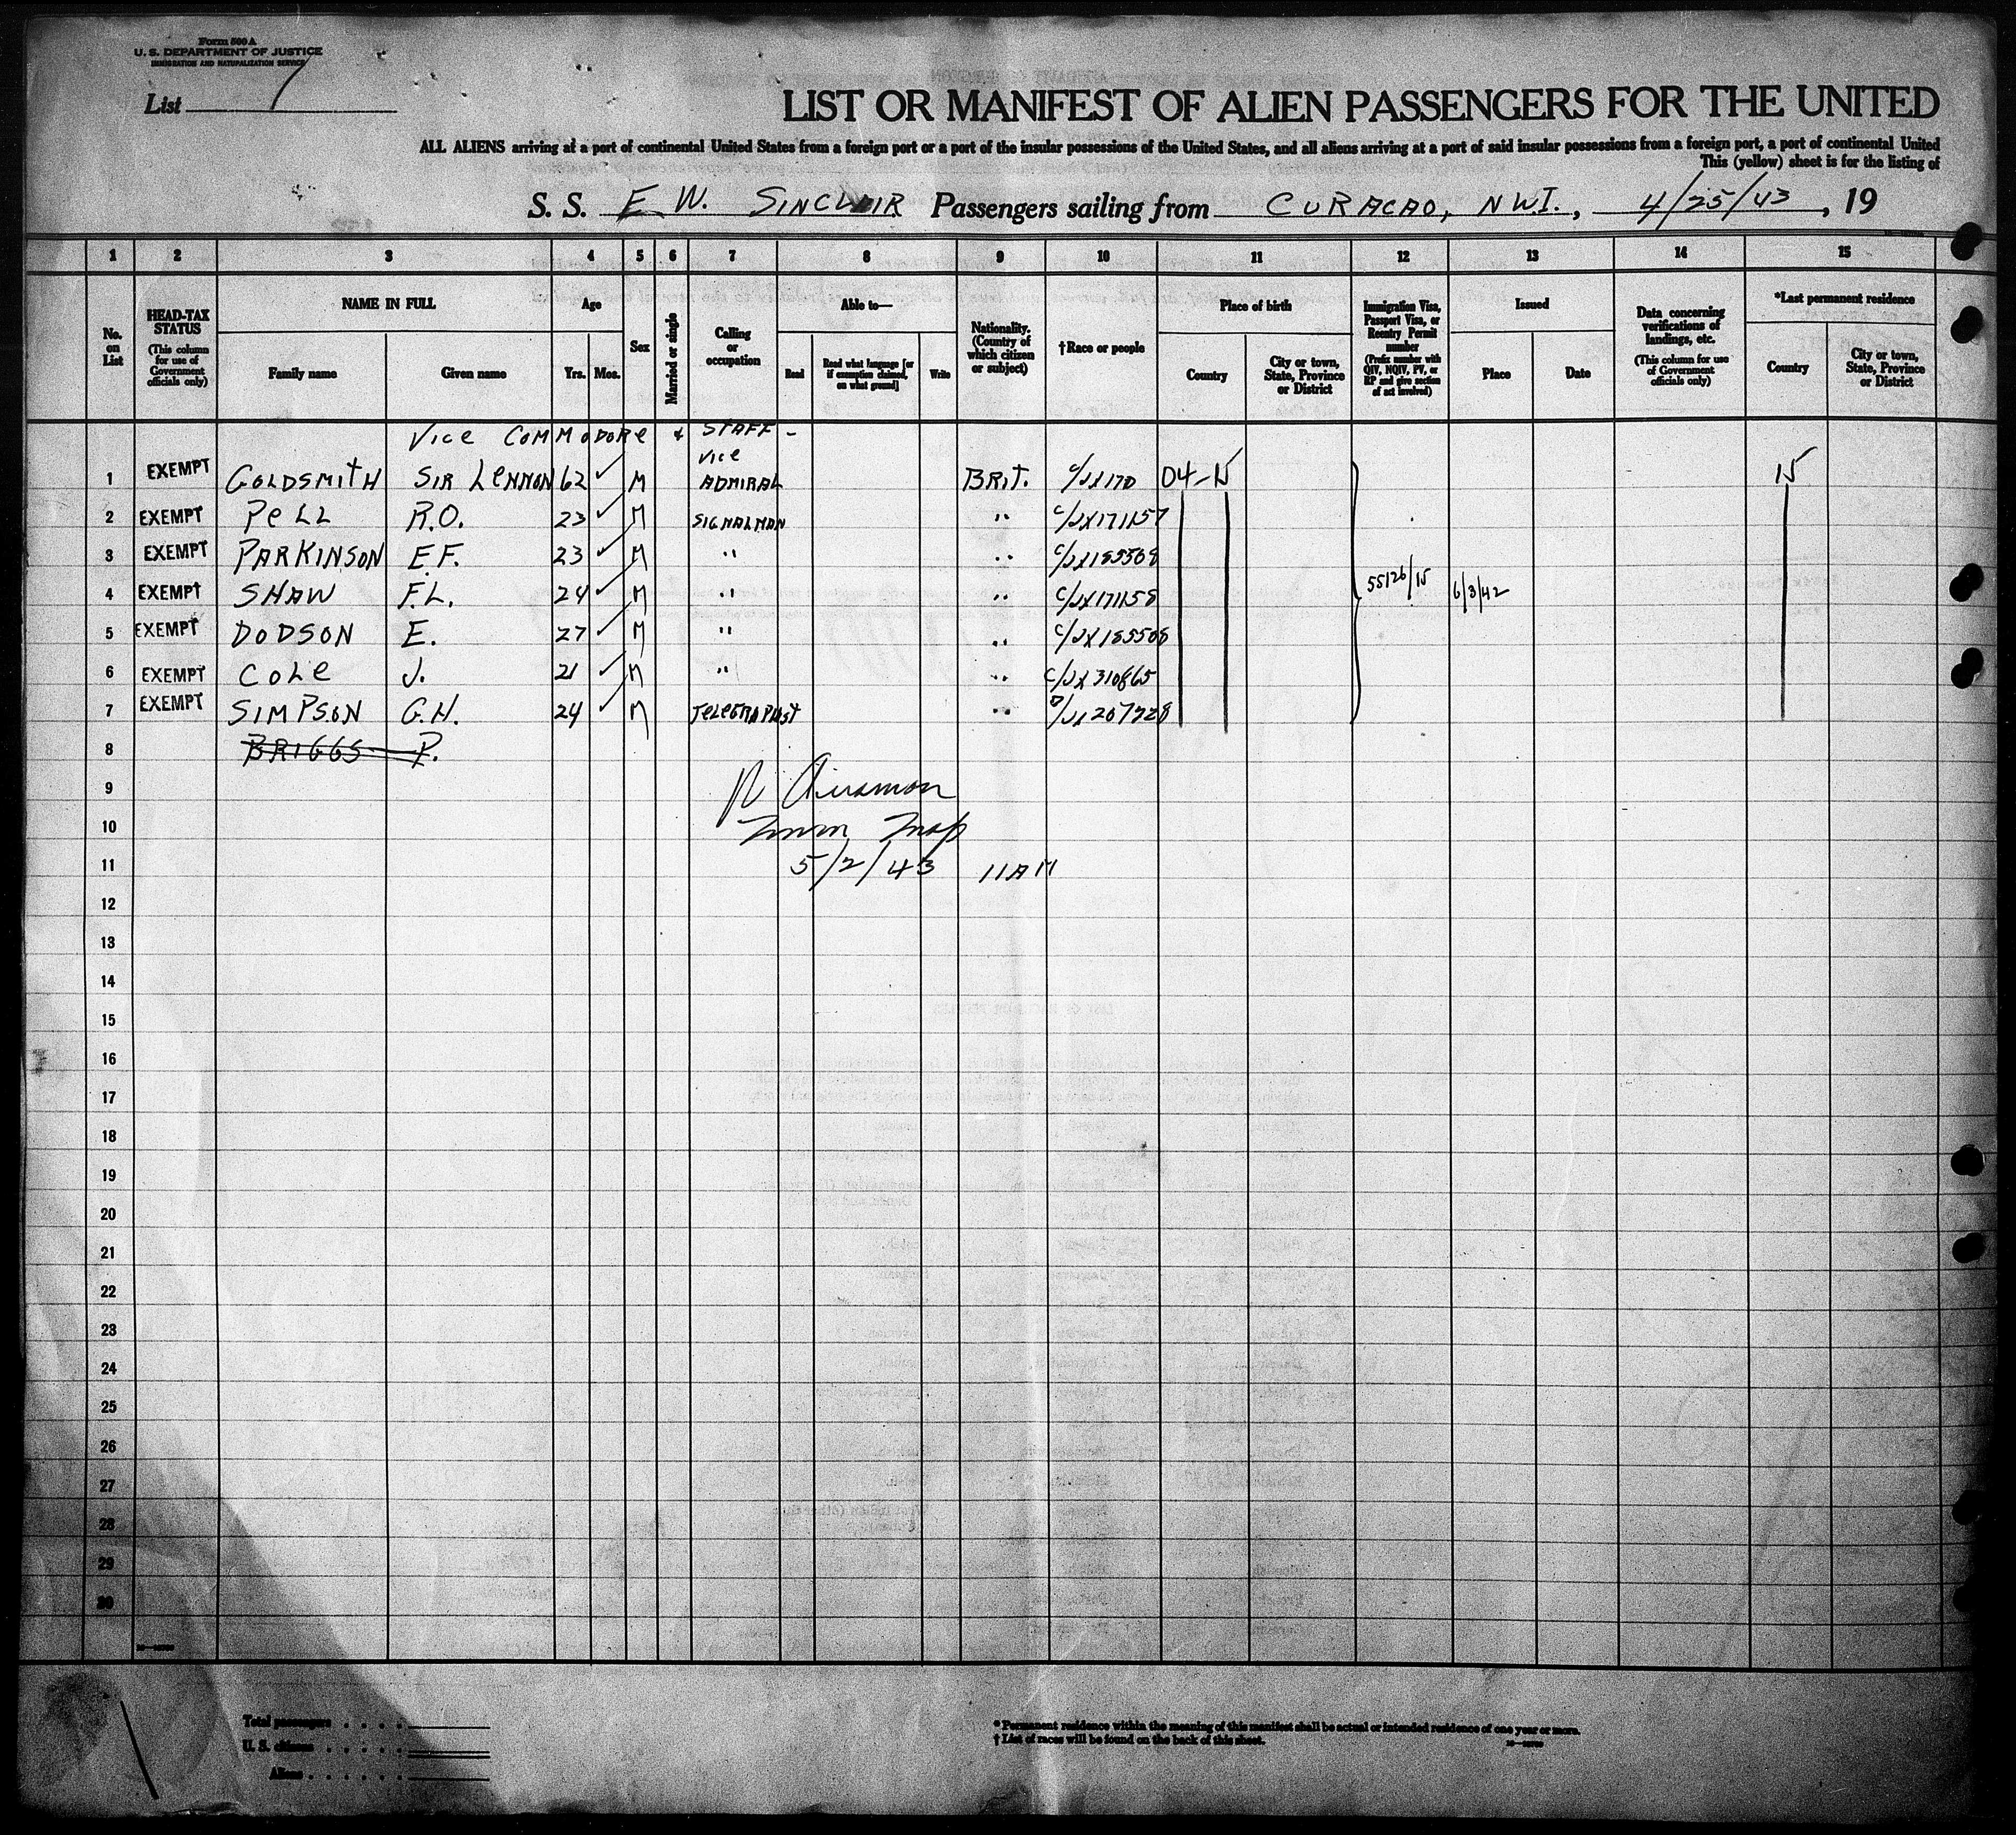 Form 500 A
U. S. DEPARTMENT OF JUSTICE
IMMIGRATION AND NATURALIZATION SERVICE
List 1
LIST OR MANIFEST OF ALIEN PASSENGERS FOR THE UNITED
ALL ALIENS arriving at a port of continental United States from a foreign port or a port of the insular possessions of the United States, and all aliens arriving at a port of said insular possessions from a foreign port, a port of continental United
This (yellow) sheet is for the listing of
S. S. E. W. SINCLAIR Passengers sailing from CURACAO, N.W.I., 4/25/43, 19
1 2 3 4 5 6 7 8 9 10 11 12 13 14 15
No. on List
HEAD-TAX STATUS (This column for use of Government officials only)
NAME IN FULL
Family name
Given name
Age
Yrs. Mos.
Sex
Married or single
Calling or occupation
Able to—
Read
Read what language [or if exemption claimed, on what ground]
Write
Nationality. (Country of which citizen or subject)
†Race or people
Place of birth
Country
City or town, State, Province or District
Immigration Visa, Passport Visa, or Reentry Permit number (Prefix number with QIV, NQIV, PV, or RP and give section of act involved)
Issued
Place
Date
Data concerning verifications of landings, etc. (This column for use of Government officials only)
*Last permanent residence
Country
City or town, State, Province or District
VICE COMMODORE & STAFF -
1 EXEMPT GOLDSMITH SIR LENNON 62 ✓ M VICE ADMIRAL BRIT. 04-15 15
2 EXEMPT PELL R.O. 23 ✓ M SIGNALMAN " C/JX171157
3 EXEMPT PARKINSON E.F. 23 ✓ M " " C/JX185509
4 EXEMPT SHAW F.L. 24 ✓ M " " C/JX171158 55126/15 6/3/42
5 EXEMPT DODSON E. 27 ✓ M " " C/JX185508
6 EXEMPT COLE J. 21 ✓ M " " C/JX310865
7 EXEMPT SIMPSON G.H. 24 ✓ M TELEGRAPHIST "
8 BRIGGS P.
9
10
11 5/2/43 11AM
12
13
14
15
16
17
18
19
20
21
22
23
24
25
26
27
28
29
30
Total passengers . . . .
U. S. citizens . . . . .
Aliens . . . . . .
* Permanent residence within the meaning of this manifest shall be actual or intended residence of one year or more.
† List of races will be found on the back of this sheet.